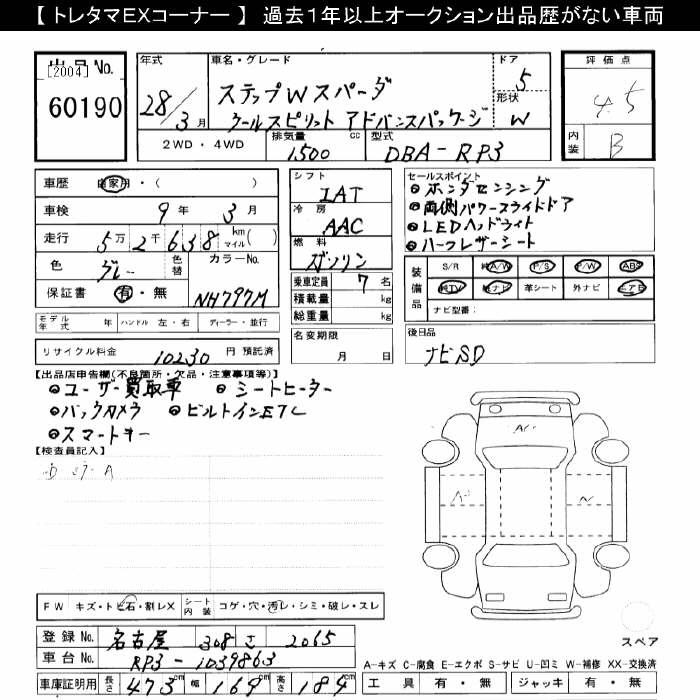 【 トレタマEXコーナー 】 過去1年以上オークション出品歴がない車両
出品 No.
[2004]
60190
年式
28/3月
車名・グレード
ステップWスパーダ
クールスピリット アドバンスパッケージ
ドア
5
形状
W
評価点
4.5
内装
B
2WD ・ 4WD
排気量
1500 cc
型式
DBA-RP3
車歴 自家用・( )
車検 9年 3月
走行 5万2千638 km マイル( )
色 グレー 色替 カラーNo.
保証書 有・無 NH797M
モデル年式 年 ハンドル 左・右 ディーラー・並行
リサイクル料金 10230 円 預託済
シフト
IAT
冷房
AAC
燃料
ガソリン
乗車定員 7 名
積載量 kg
総重量 kg
名変期限
月 日
セールスポイント
●ホンダセンシング
●両側パワースライドドア
●LEDヘッドライト
●ハーフレザーシート
装備品
S/R 純A/W P/S P/W ABS
純TV 純ナビ 革シート 外ナビ エアB
ナビ型番:
後日品
ナビSD
【出品店申告欄(不良箇所・欠品・注意事項等)】
●ユーザー買取車 ●シートヒーター
●バックカメラ ●ビルトインETC
●スマートキー
【検査員記入】
A
A
FW キズ・トビ石・割レX シート内装 コゲ・穴・汚レ・シミ・破レ・スレ
登録 No. 名古屋 308 さ 2065
車台 No. RP3-1039863
車庫証明用 長さ 473 cm 幅 169 cm 高さ 184 cm
スペア
A-キズ C-腐食 E-エクボ S-サビ U-凹ミ W-補修 XX-交換済
工具 有・無 ジャッキ 有・無